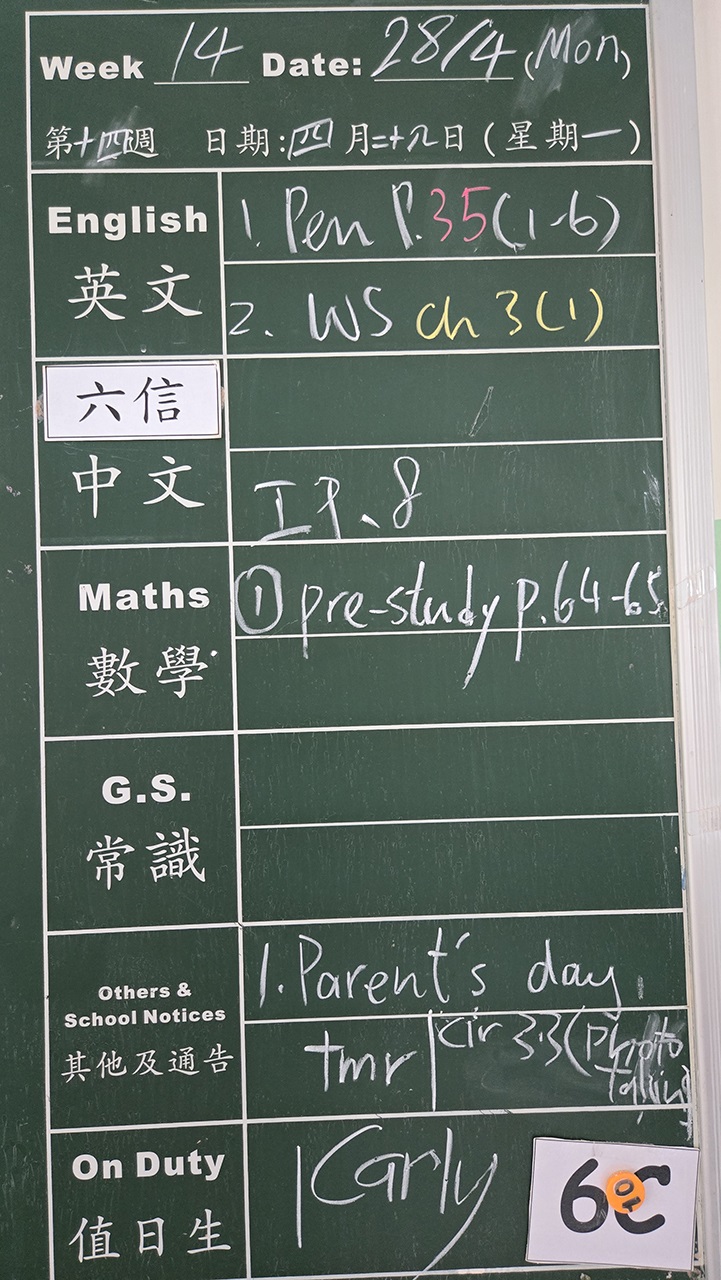 Week 14 Date: 28/4 (Mon)
第十四週 日期:四月二十八日(星期一)
English
英文
1. Pen P.35(1-6)
2. WS ch 3(1)
六信
中文
I P. 8
Maths
數學
① pre-study p.64-65
G.S.
常識
Others &
School Notices
其他及通告
1. Parent's day
tmr
Cir 33(photo
taking
On Duty
值日生
Carly
6C